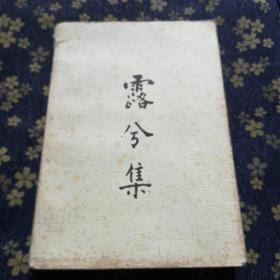 露兮集